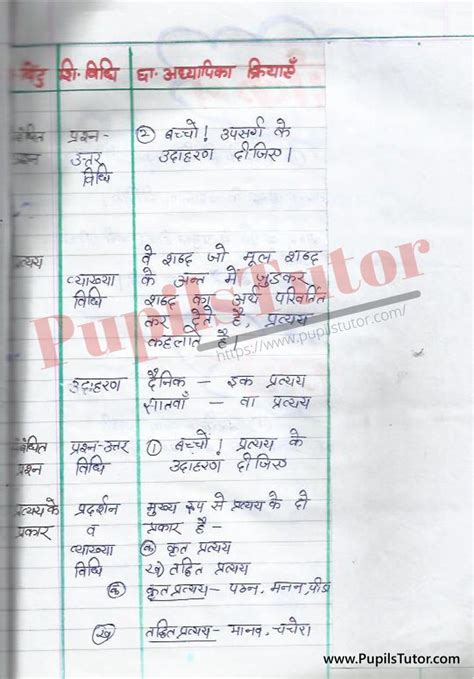 बिंदु शि. विधि छा. अध्यापिका क्रियाएँ
बंधित प्रश्न- ② बच्चो! उपसर्ग के
प्रश्न उत्तर उदाहरण दीजिए।
विधि
प्रत्यय वे शब्द जो मूल शब्द
व्याख्या के अन्त में जुडकर
विधि शब्द का अर्थ परिवर्तित
कर देते है, प्रत्यय
कहलाते है,
उदाहरण दैनिक - इक प्रत्यय
सातवाँ - वा प्रत्यय
बंधित प्रश्न-उत्तर ① बच्चो! प्रत्यय के
प्रश्न विधि उदाहरण दीजिए
प्रत्यय के प्रदर्शन मुख्य रूप से प्रत्यय के दो
प्रकार व प्रकार है -
व्याख्या क) कृत प्रत्यय
विधि ख) तद्धित प्रत्यय
क) कृत प्रत्यय - पठन, मनन,
ख) तद्धित प्रत्यय - मानव, चचेरा
PupilsTutor
https://www.pupilstutor.com/
www.PupilsTutor.com